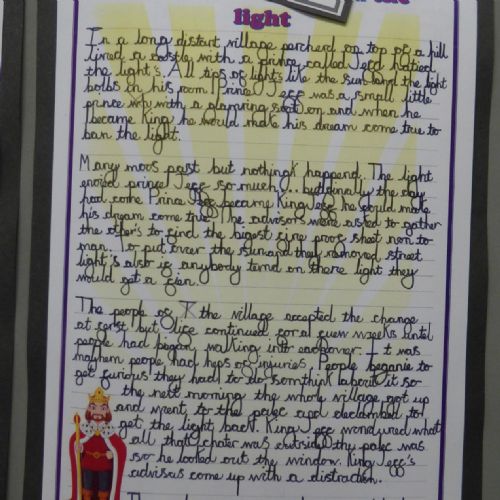 the
light
In a long distant village percherd on top of a hill
lived a castle with a prince called Jeff hatied
the light's. All tips of light's like the sun and the light
bolbs in his room! Prince Jeff was a small little
prince with a glamring soot on and when he
became King he would make his dream come true to
ban the light.
Many moos past but nothingk happend. The light
enoied prince Jeff so much... but finally the day
had come Prince Jeff becamy King Jeff he could make
his dream come true. The advisors were asked to gather
the other's to find the bigest fire proof sheet non to
man. To put over the sun and they removed street
light's also if anybody ternd on there light they
would get a fien.
The people of the village accepted the change
at ferst but life continued for a fuew weeks until
people had began walking into eachover. It was
mayhem people had heps of injuries. People beganie to
get furious they had to do somthink aborit it so
the next morning the whole village got up
and went to the palec and declambed to
get the light back. King Jeff wondured what
all that chater was outside the palec was
so he looked out the window. King Jeff's
advisas come up with a distracshon.